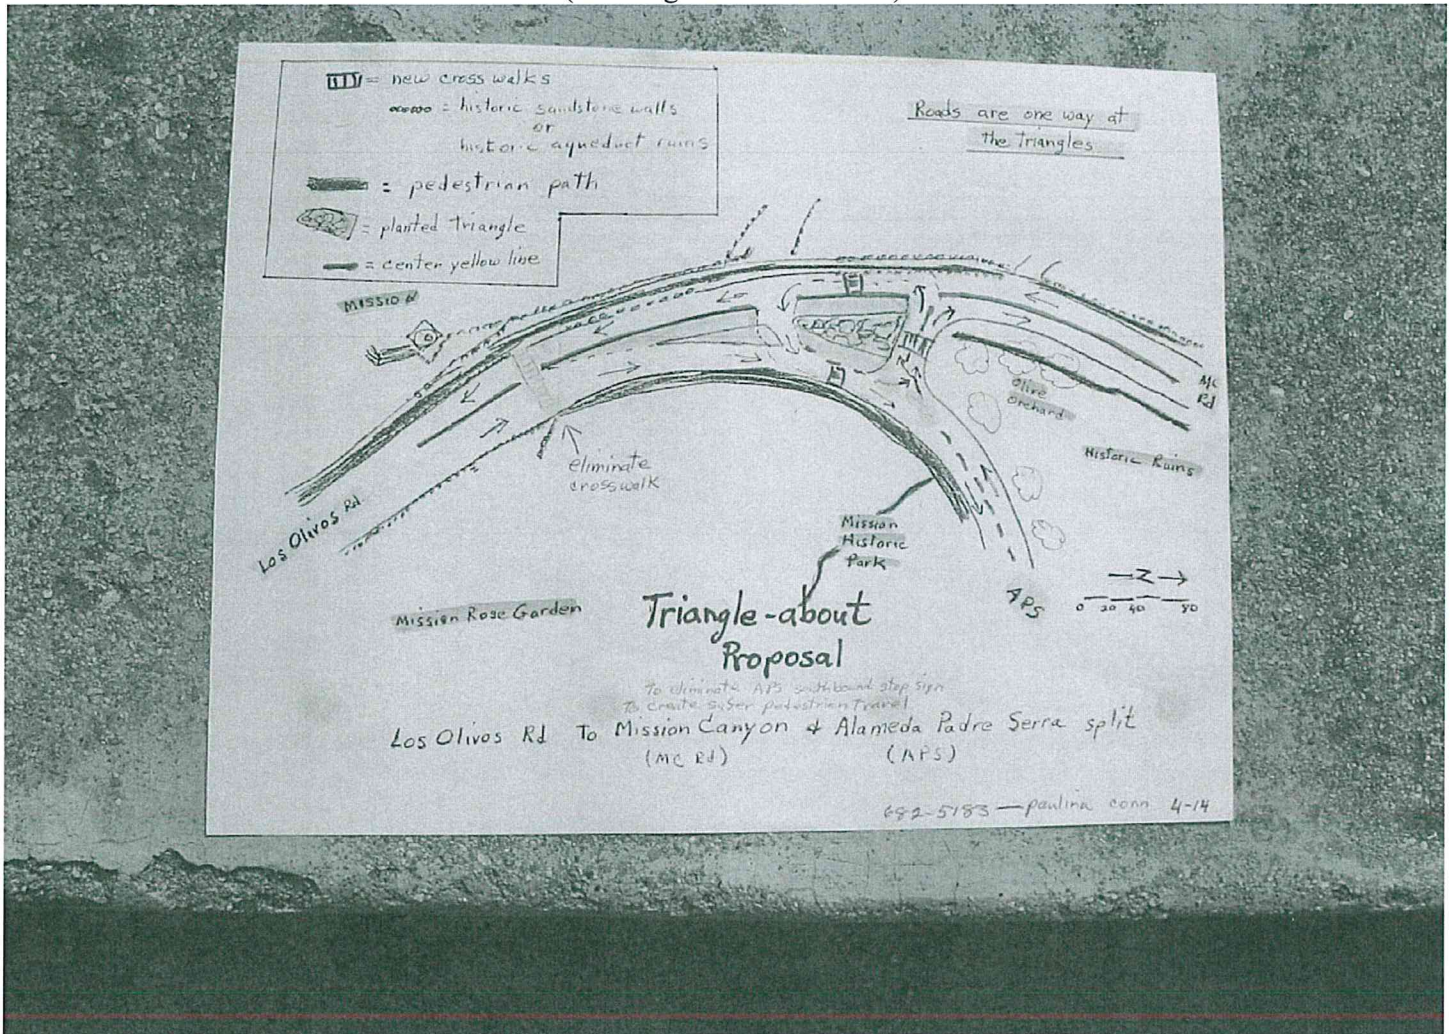 = new cross walks
= historic sandstone walls
or
historic aqueduct ruins
= pedestrian path
= planted triangle
= center yellow line
Roads are one way at
the Triangles
MISSION
MC
Rd
Olive
orchard
Historic Ruins
eliminate
crosswalk
Los Olivos Rd
Mission
Historic
Park
N
0 20 40 80
APS
Mission Rose Garden
Triangle-about
Proposal
To eliminate APS southbound stop sign
To create safer pedestrian travel
Los Olivos Rd To Mission Canyon & Alameda Padre Serra split
(MC Rd) (APS)
682-5183 — paulina conn 4-14